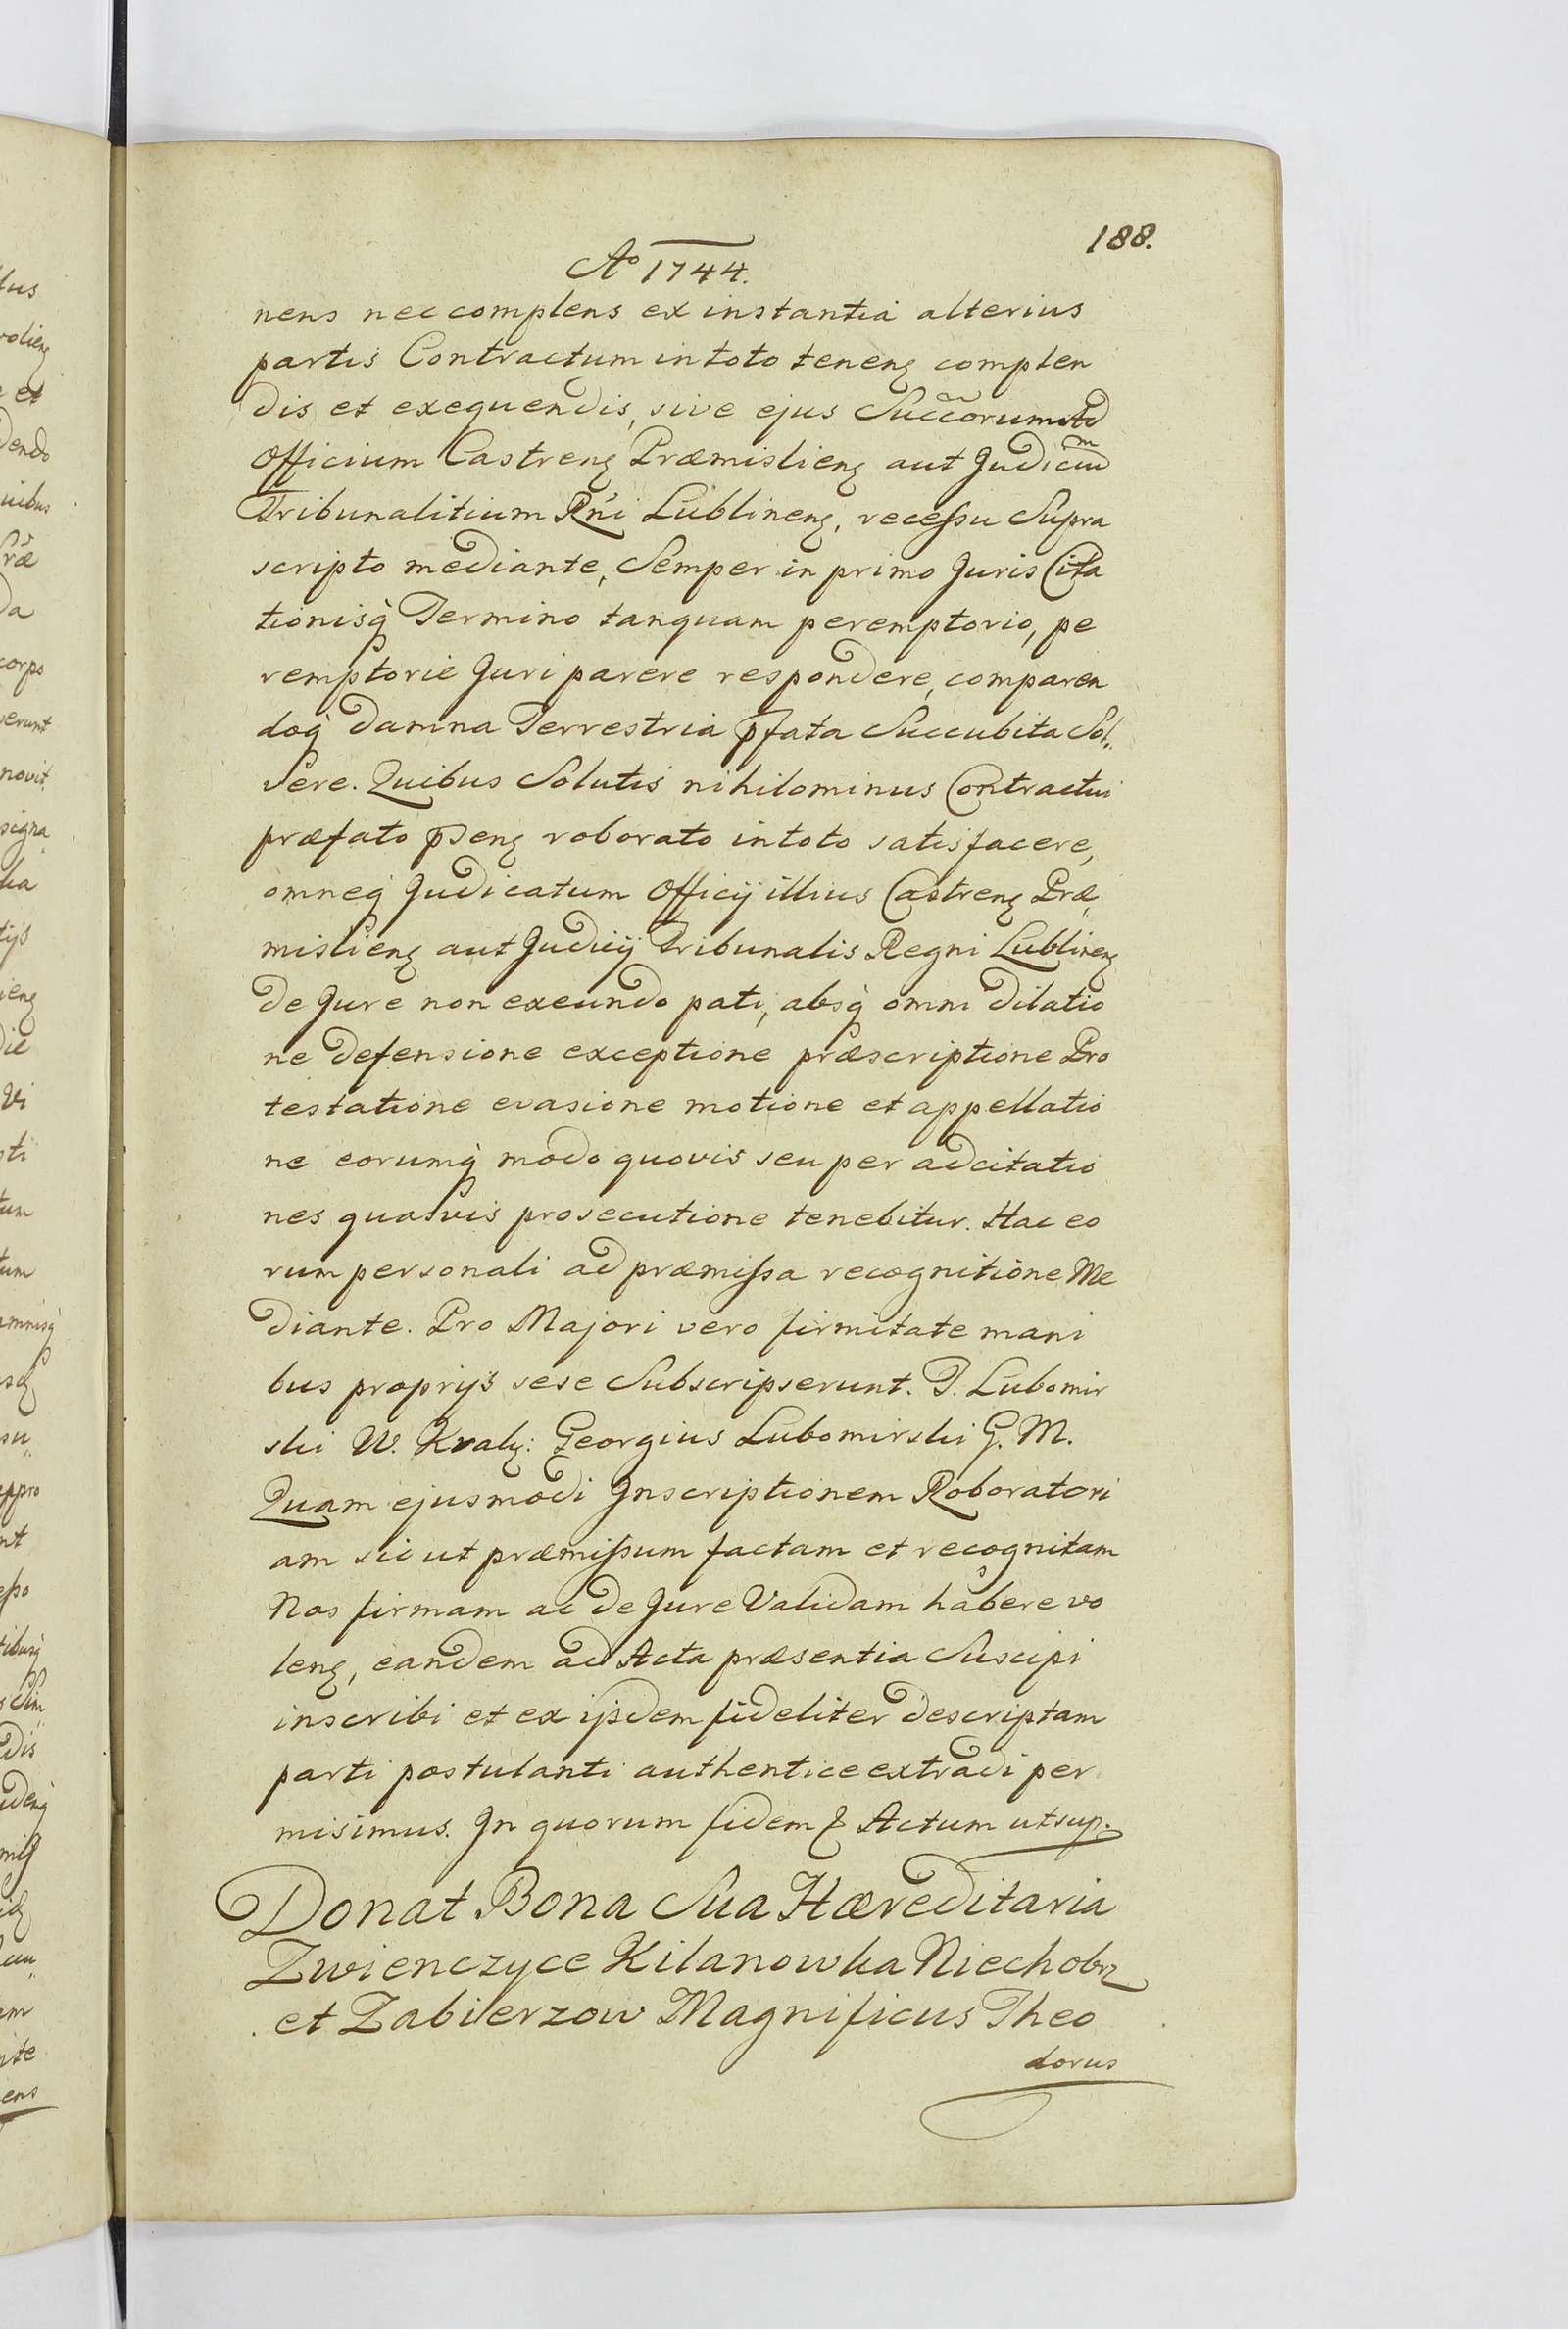 188.
Aº 1744.
nens nec complens ex instantia alterius
partis Contractum in toto tenenꝫ complen
dis et exequendis, sive ejus Succorum ad
Officium Castrenꝫ Præmislienꝫ aut Judicium
Tribunalitium Rni Lublinenꝫ, recessu Supra
scripto mediante, Semper in primo Juris Cita
tionisq̀ Termino tanquam peremptorio, pe
remptorie Juri parere respondere, comparen
doq̀ damna Terrestria pfata Succubita Sol„
vere. Quibus Solutis nihilominus Contractui
præfato pdenꝫ roborato in toto satisfacere,
omneq̀ Judicatum Officij illius Castrenꝫ Præ„
mislienꝫ aut Judicij Tribunalis Regni Lublinenꝫ
de Jure non exeundo pati, absq̀ omni dilatio
ne defensione exceptione præscriptione Pro
testatione evasione motione et appellatio
ne eorumq̀ modo quovis seu per adcitatio
nes quasvis prosecutione tenebitur. Hac eo
rum personali ad præmissa recognitione Me
diante. Pro Majori vero firmitate mani
bus proprijs sese Subscripserunt. T. Lubomir
ski W. Krakꝫ: Georgius Lubomirski G. M.
Quam ejusmodi Inscriptionem Roboratori
am sic ut præmissum factam et recognitam
Nos firmam ac de Jure Validam habere vo
lenꝫ, eandem ad Acta præsentia Suscipi
inscribi et ex ijsdem fideliter descriptam
parti postulanti authentice extradi per
misimus. In quorum fidem ꝛ Actum ut sup.
Donat Bona Sua Hæreditaria
Zwienczyce Kilanowka Niechobrz
et Zabierzow Magnificus Theo
dorus